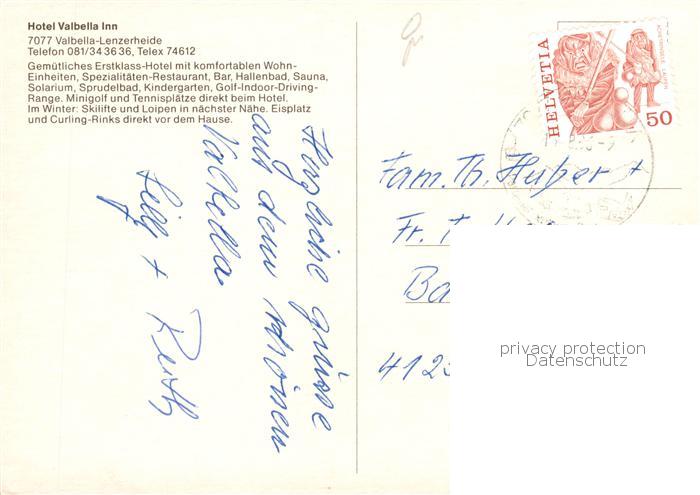 Hotel Valbella Inn
7077 Valbella-Lenzerheide
Telefon 081/34 36 36, Telex 74612
Gemütliches Erstklass-Hotel mit komfortablen Wohn-
Einheiten, Spezialitäten-Restaurant, Bar, Hallenbad, Sauna,
Solarium, Sprudelbad, Kindergarten, Golf-Indoor-Driving-
Range. Minigolf und Tennisplätze direkt beim Hotel.
Im Winter: Skilifte und Loipen in nächster Nähe. Eisplatz
und Curling-Rinks direkt vor dem Hause.
Herzliche grüsse
aus dem schönen
Valbella
+ Ruth
HELVETIA
50
Fam. Th. Huber +
Fr. T.
Ba
412
privacy protection
Datenschutz